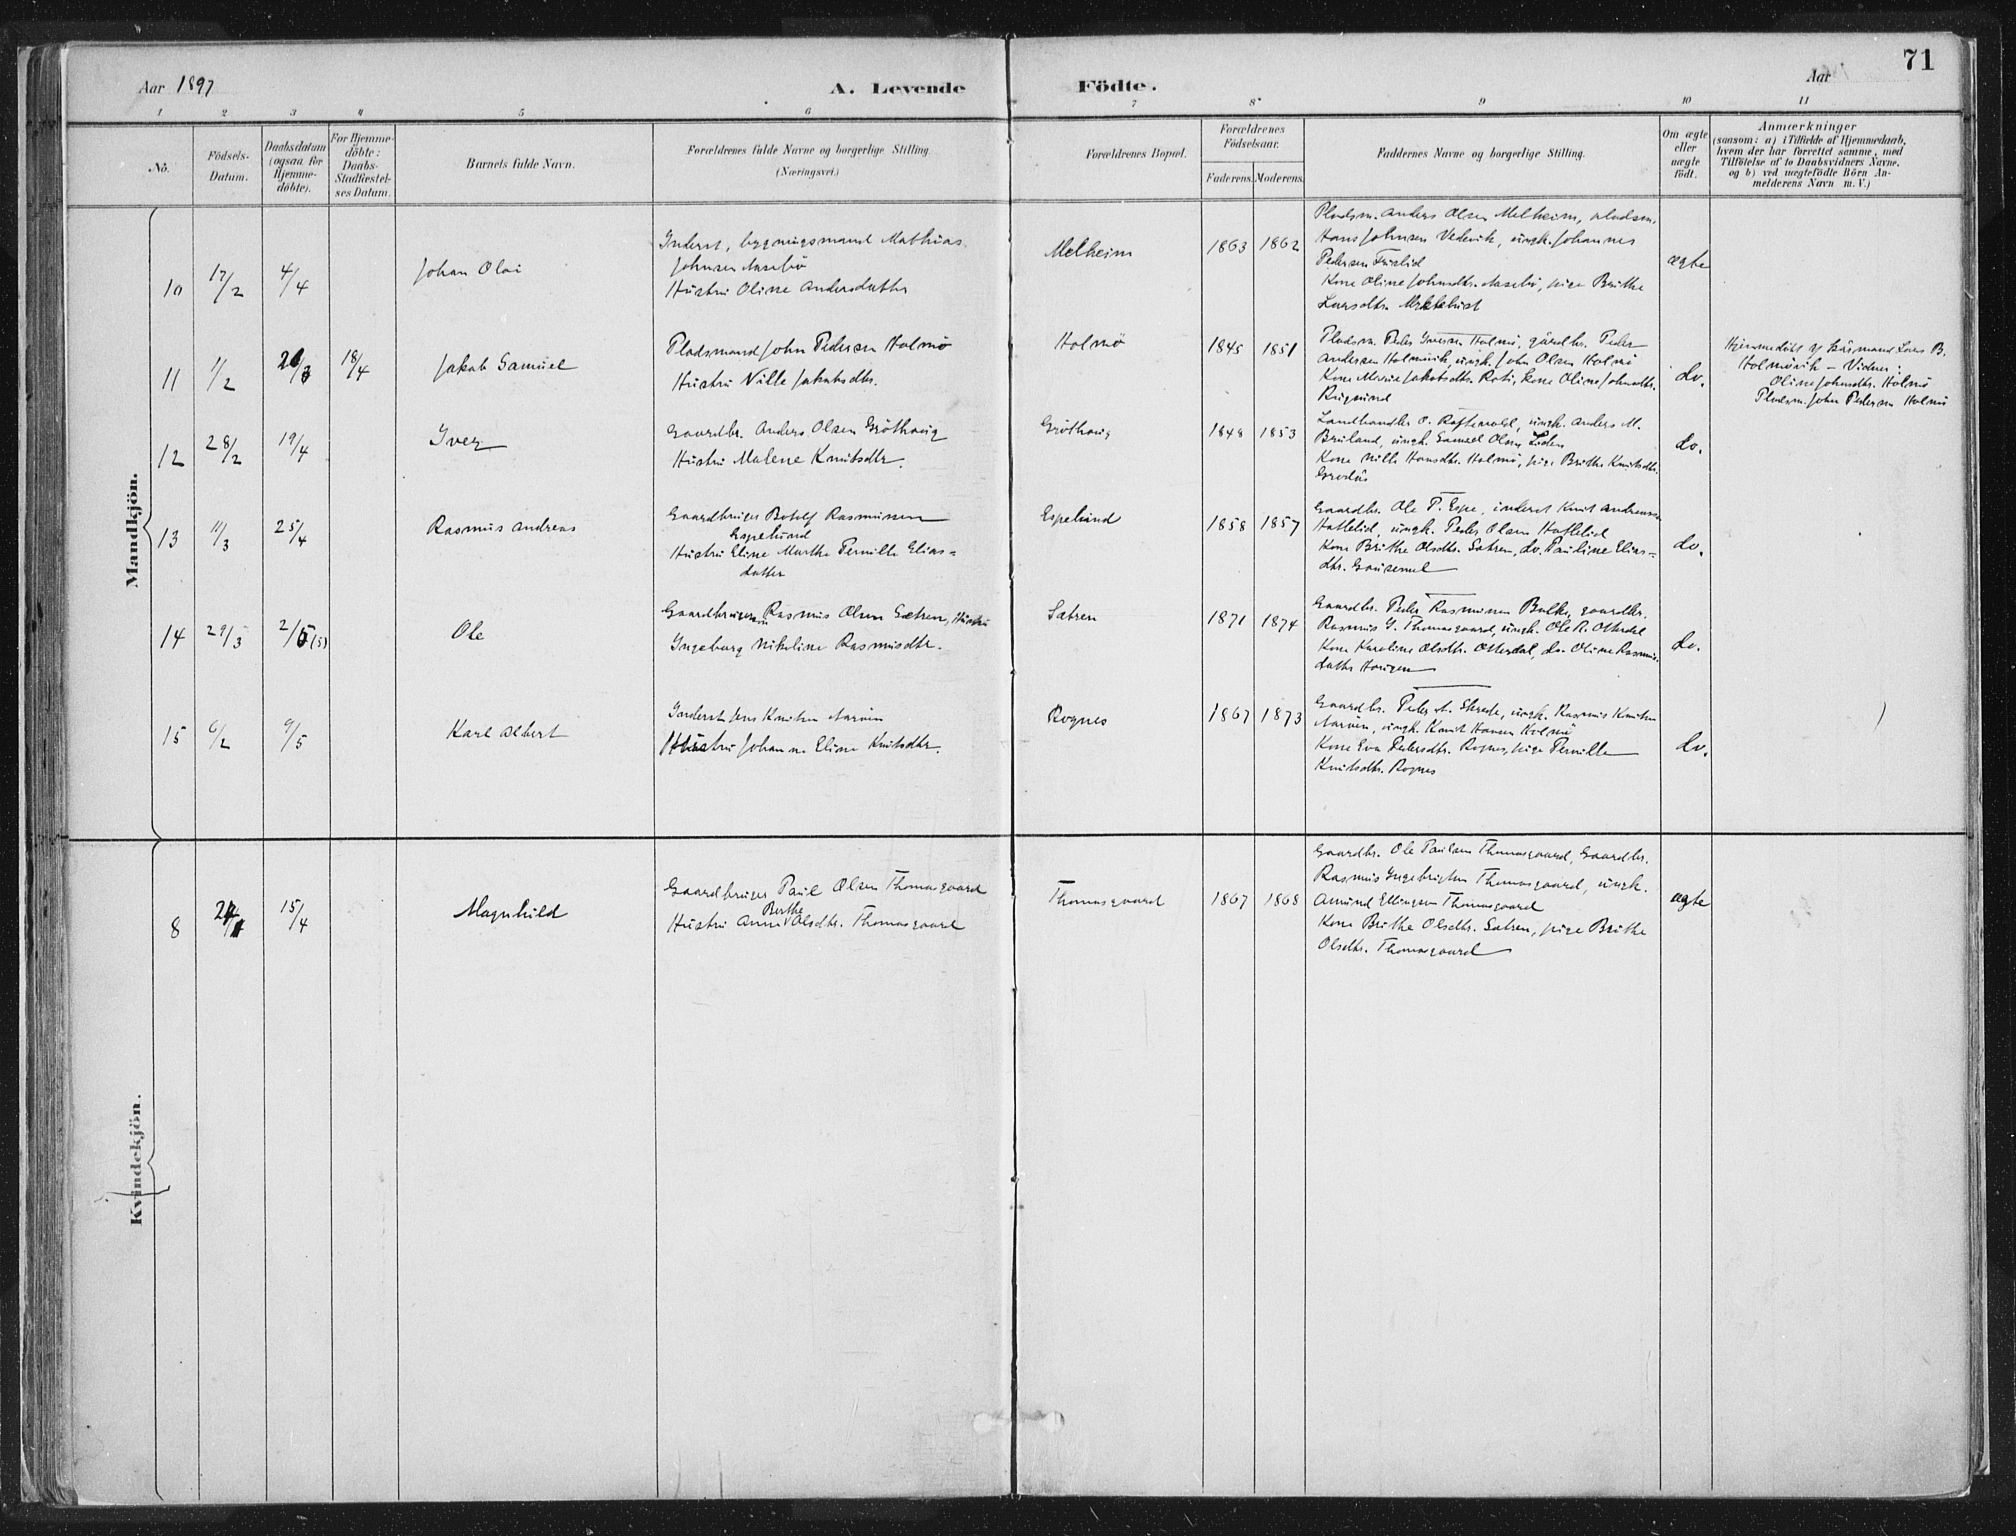 71
Aar 1897
A. Levende Födte.
Aar
1 2 3 4 5 6 7 8 9 10 11
No.
Födsels-Datum.
Daabsdatum (ogsaa for Hjemmedöbte).
For Hjemmedöbte: Daabs-Stadfæstelses Datum.
Barnets fulde Navn.
Forældrenes fulde Navne og borgerlige Stilling (Næringsvei.)
Forældrenes Bopæl.
Forældrenes Födselsaar.
Faderens. Moderens.
Faddernes Navne og borgerlige Stilling.
Om ægte eller uægte födt.
Anmærkninger
(saasom: a) i Tilfælde af Hjemmedaab,
hvem der har forrettet samme, med
Tilföielse af to Daabsvidners Navne,
og b) ved uægtefödte Börn An-
melderens Navn m. V.)
Mandkjön.
10 17/2 4/4
Johan Olai
Inderst, bygningsmand Mathias
Johnsen Aasebø
Hustru Oline Andersdatter
Melheim
1863 1862
Pladsm. Anders Olsen Melheim, pladsm.
Hans Johnsen Vedvik, ungk. Johannes
Pedersen
Kone Oline Johnsdtr. Aasebø, pige Brithe
Larsdtr. Myklebust
ægte
11 1/2 18/4
Jakob Samuel
Pladsmand John Pedersen Holmö
Hustru Nille Jakobsdtr.
Holmö
1845 1851
Pladsm. Peder Iversen Holmö, gårdbr. Peder
Andersen Holmövik, ungk. John Olsen Holmö
Kone Maria Jakobsdtr. Roti, kone Oline Johnsdtr.
Rugsund
do.
Hjemmedöbt af Lars B.
Holmövik - Vidner:
Oline Johnsdtr. Holmö
Pladsm. John Pedersen Holmö
12 28/2 19/4
Iver
Gaardbr. Anders Olsen Gröthaug
Hustru Malene Knutsdtr.
Gröthaug
1848 1853
Landhandler O. Raftevold, ungk. Anders M.
Bruland, ungk. Samuel Olsen Liden
Kone Nille Hansdtr. Holmö, pige Brithe Knutsdtr.
Grodås
do.
13 11/3 25/4
Rasmus Andreas
Gaardbruger Botolf Rasmussen
Espelund
Hustru Eline Marthe Pernille Elias=
datter
Espelund
1858 1857
Gaardbr. Ole P. Espe, inderst Knut Andreassen
Hatlelid, ungk. Peder Olsen Hatlelid
Kone Brithe Olsdtr. Sætren, do. Pauline Elias=
dtr. Gausemel
do.
14 29/3 2/5 (3)
Ole
Gaardbruger Rasmus Olsen Sætren, Hustru
Ingeborg Nikoline Rasmusdtr.
Sætren
1871 1874
Gaardbr. Peder Rasmussen Bulke, gaardbr.
Rasmus I. Thomasgaard, ungk. Ole R. Otterdal
Kone Karoline Olsdtr. Otterdal, do. Oline Rasmus=
datter Haugen
do.
15 6/2 9/5
Karl Albert
Inderst Jens Knutsen Aarøen
Hustru Johanne Eline Knutsdtr.
Rognes
1867 1873
Gaardbr. Peder A. Skrede, ungk. Rasmus Knutsen
Aarøen, ungk. Knut Hansen Holmö
Kone Eva Pedersdtr. Rognes, pige Pernille
Knutsdtr. Rognes
do.
Kvindekjön.
8 15/4
Magnhild
Gaardbruger Paul Olsen Thomasgaard
Hustru Anne Berthe Olsdtr. Thomasgaard
Thomasgaard
1867 1868
Gaardbr. Ole Paulsen Thomasgaard, Gaardbr.
Rasmus Ingebrigtsen Thomasgaard, ungk.
Amund Ellingsen Thomasgaard
Kone Brithe Olsdtr. Sætren, pige Brithe
Olsdtr. Thomasgaard
ægte